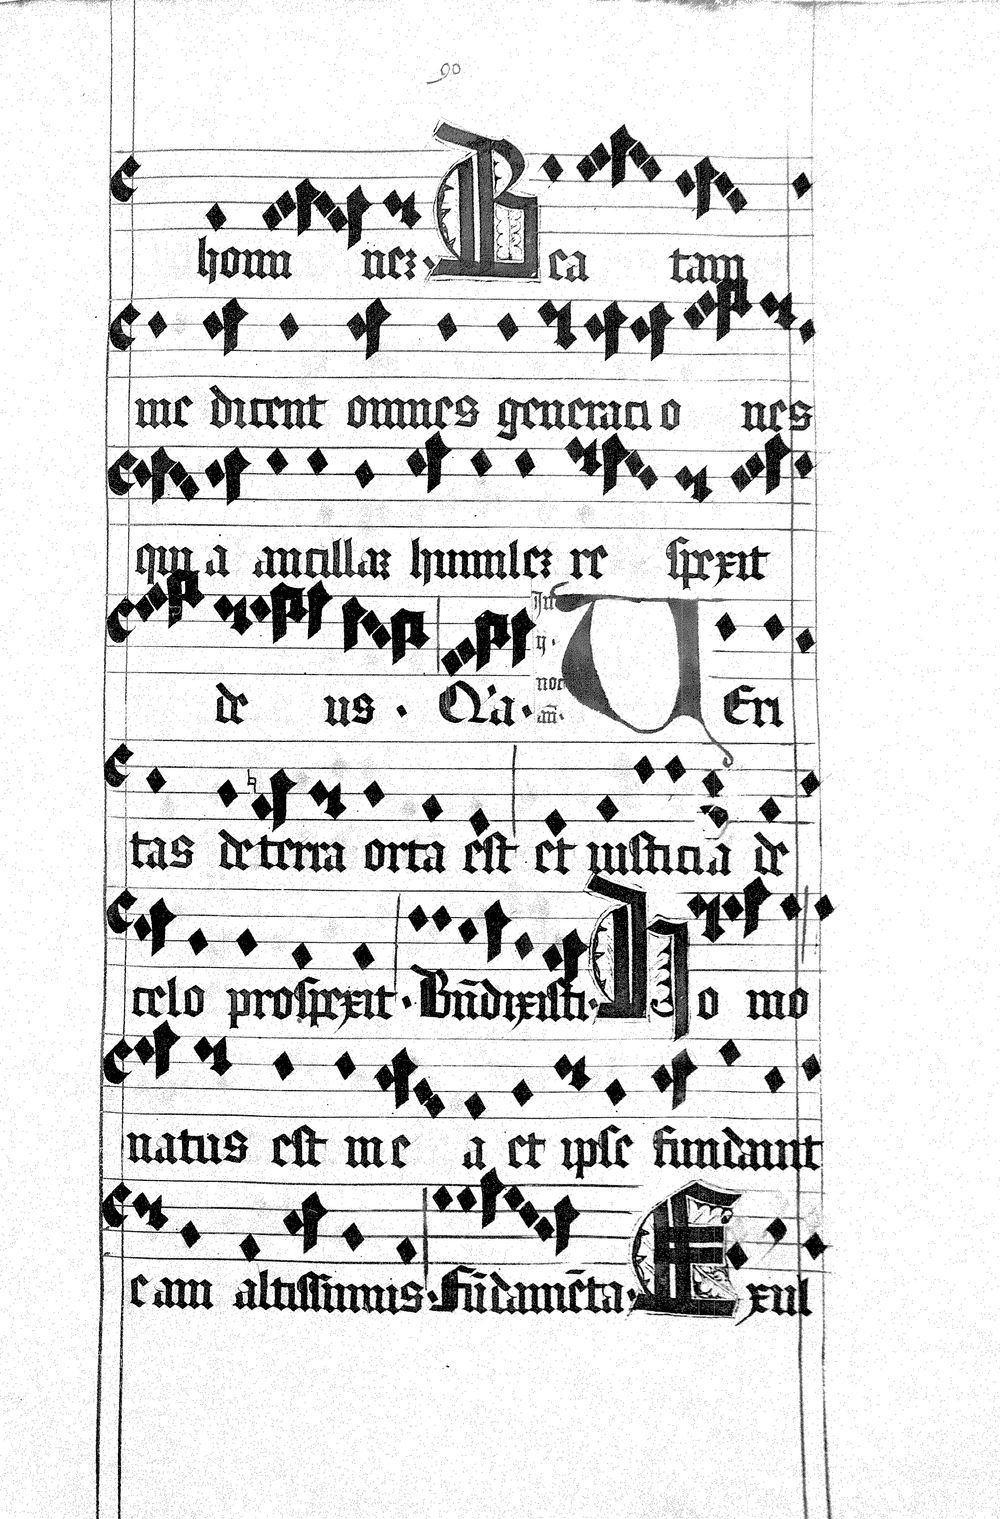 90
homi nez. Bea tam
me dicent omnes generacio nes
quia ancillaz humilez re spexit
In
ij.
de us. Q'a. noc Veri
añ.
tas deterra orta est et iusticia de
celo prospexit. Bñdixisti. Homo mo
natus est me a et ipse fundauit
eam altissimus. Fūdamēta. Exul